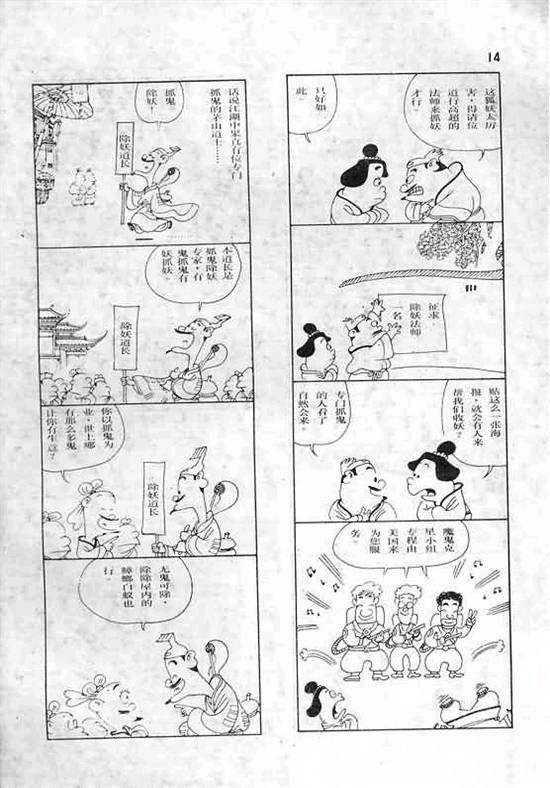 14
这狐妖太厉
害，得请位
道行高超的
法师来抓妖
才行。
只好如
此。
征求
除妖法师
一名
贴这么一张海
报，就会有人来
帮我们收妖？
专门抓鬼
的人看了
自然会来。
魔鬼克
星小组
专程由
美国来
为您服
务。
话说江湖中果真有位专门
抓鬼的茅山道士……
抓鬼
除妖！
除妖道长
本道长是
抓鬼除妖
专家，有
鬼抓鬼有
妖抓妖。
除妖道长
除妖道长
你以抓鬼为
业，世上哪
有那么多鬼
让你有生意？
无鬼可除，
除除屋内的
蟑螂白蚁也
行。